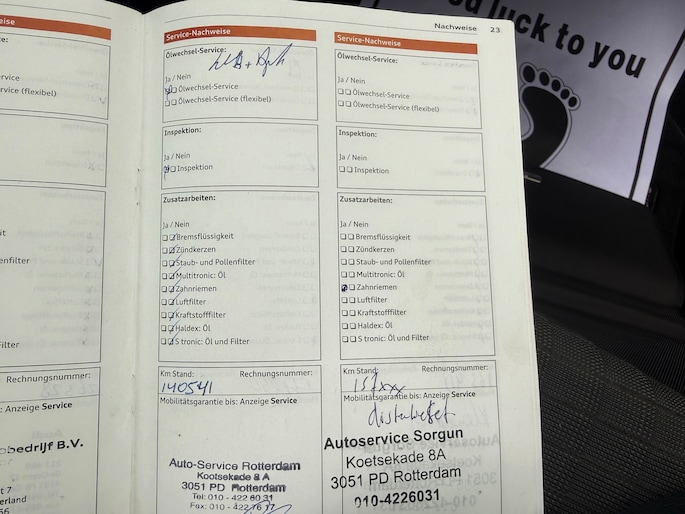 Nachweise 23
luck to you
Service-Nachweise
Ölwechsel-Service:
Ja / Nein
Ölwechsel-Service
Ölwechsel-Service (flexibel)
Inspektion:
Ja / Nein
Inspektion
Zusatzarbeiten:
Ja / Nein
Bremsflüssigkeit
Zündkerzen
Staub- und Pollenfilter
Multitronic: Öl
Zahnriemen
Luftfilter
Kraftstofffilter
Haldex: Öl
S tronic: Öl und Filter
Km Stand: Rechnungsnummer:
140541
Mobilitätsgarantie bis: Anzeige Service
Auto-Service Rotterdam
Kootsekade 8 A
3051 PD Rotterdam
Tel: 010 - 422 60 31
Fax: 010 - 422 76 17
Service-Nachweise
Ölwechsel-Service:
Ja / Nein
Ölwechsel-Service
Ölwechsel-Service (flexibel)
Inspektion:
Ja / Nein
Inspektion
Zusatzarbeiten:
Ja / Nein
Bremsflüssigkeit
Zündkerzen
Staub- und Pollenfilter
Multitronic: Öl
Zahnriemen
Luftfilter
Kraftstofffilter
Haldex: Öl
S tronic: Öl und Filter
Km Stand: Rechnungsnummer:
157xxx
Mobilitätsgarantie bis: Anzeige Service
Autoservice Sorgun
Koetsekade 8A
3051 PD Rotterdam
010-4226031
Rechnungsnummer:
: Anzeige Service
bedrijf B.V.